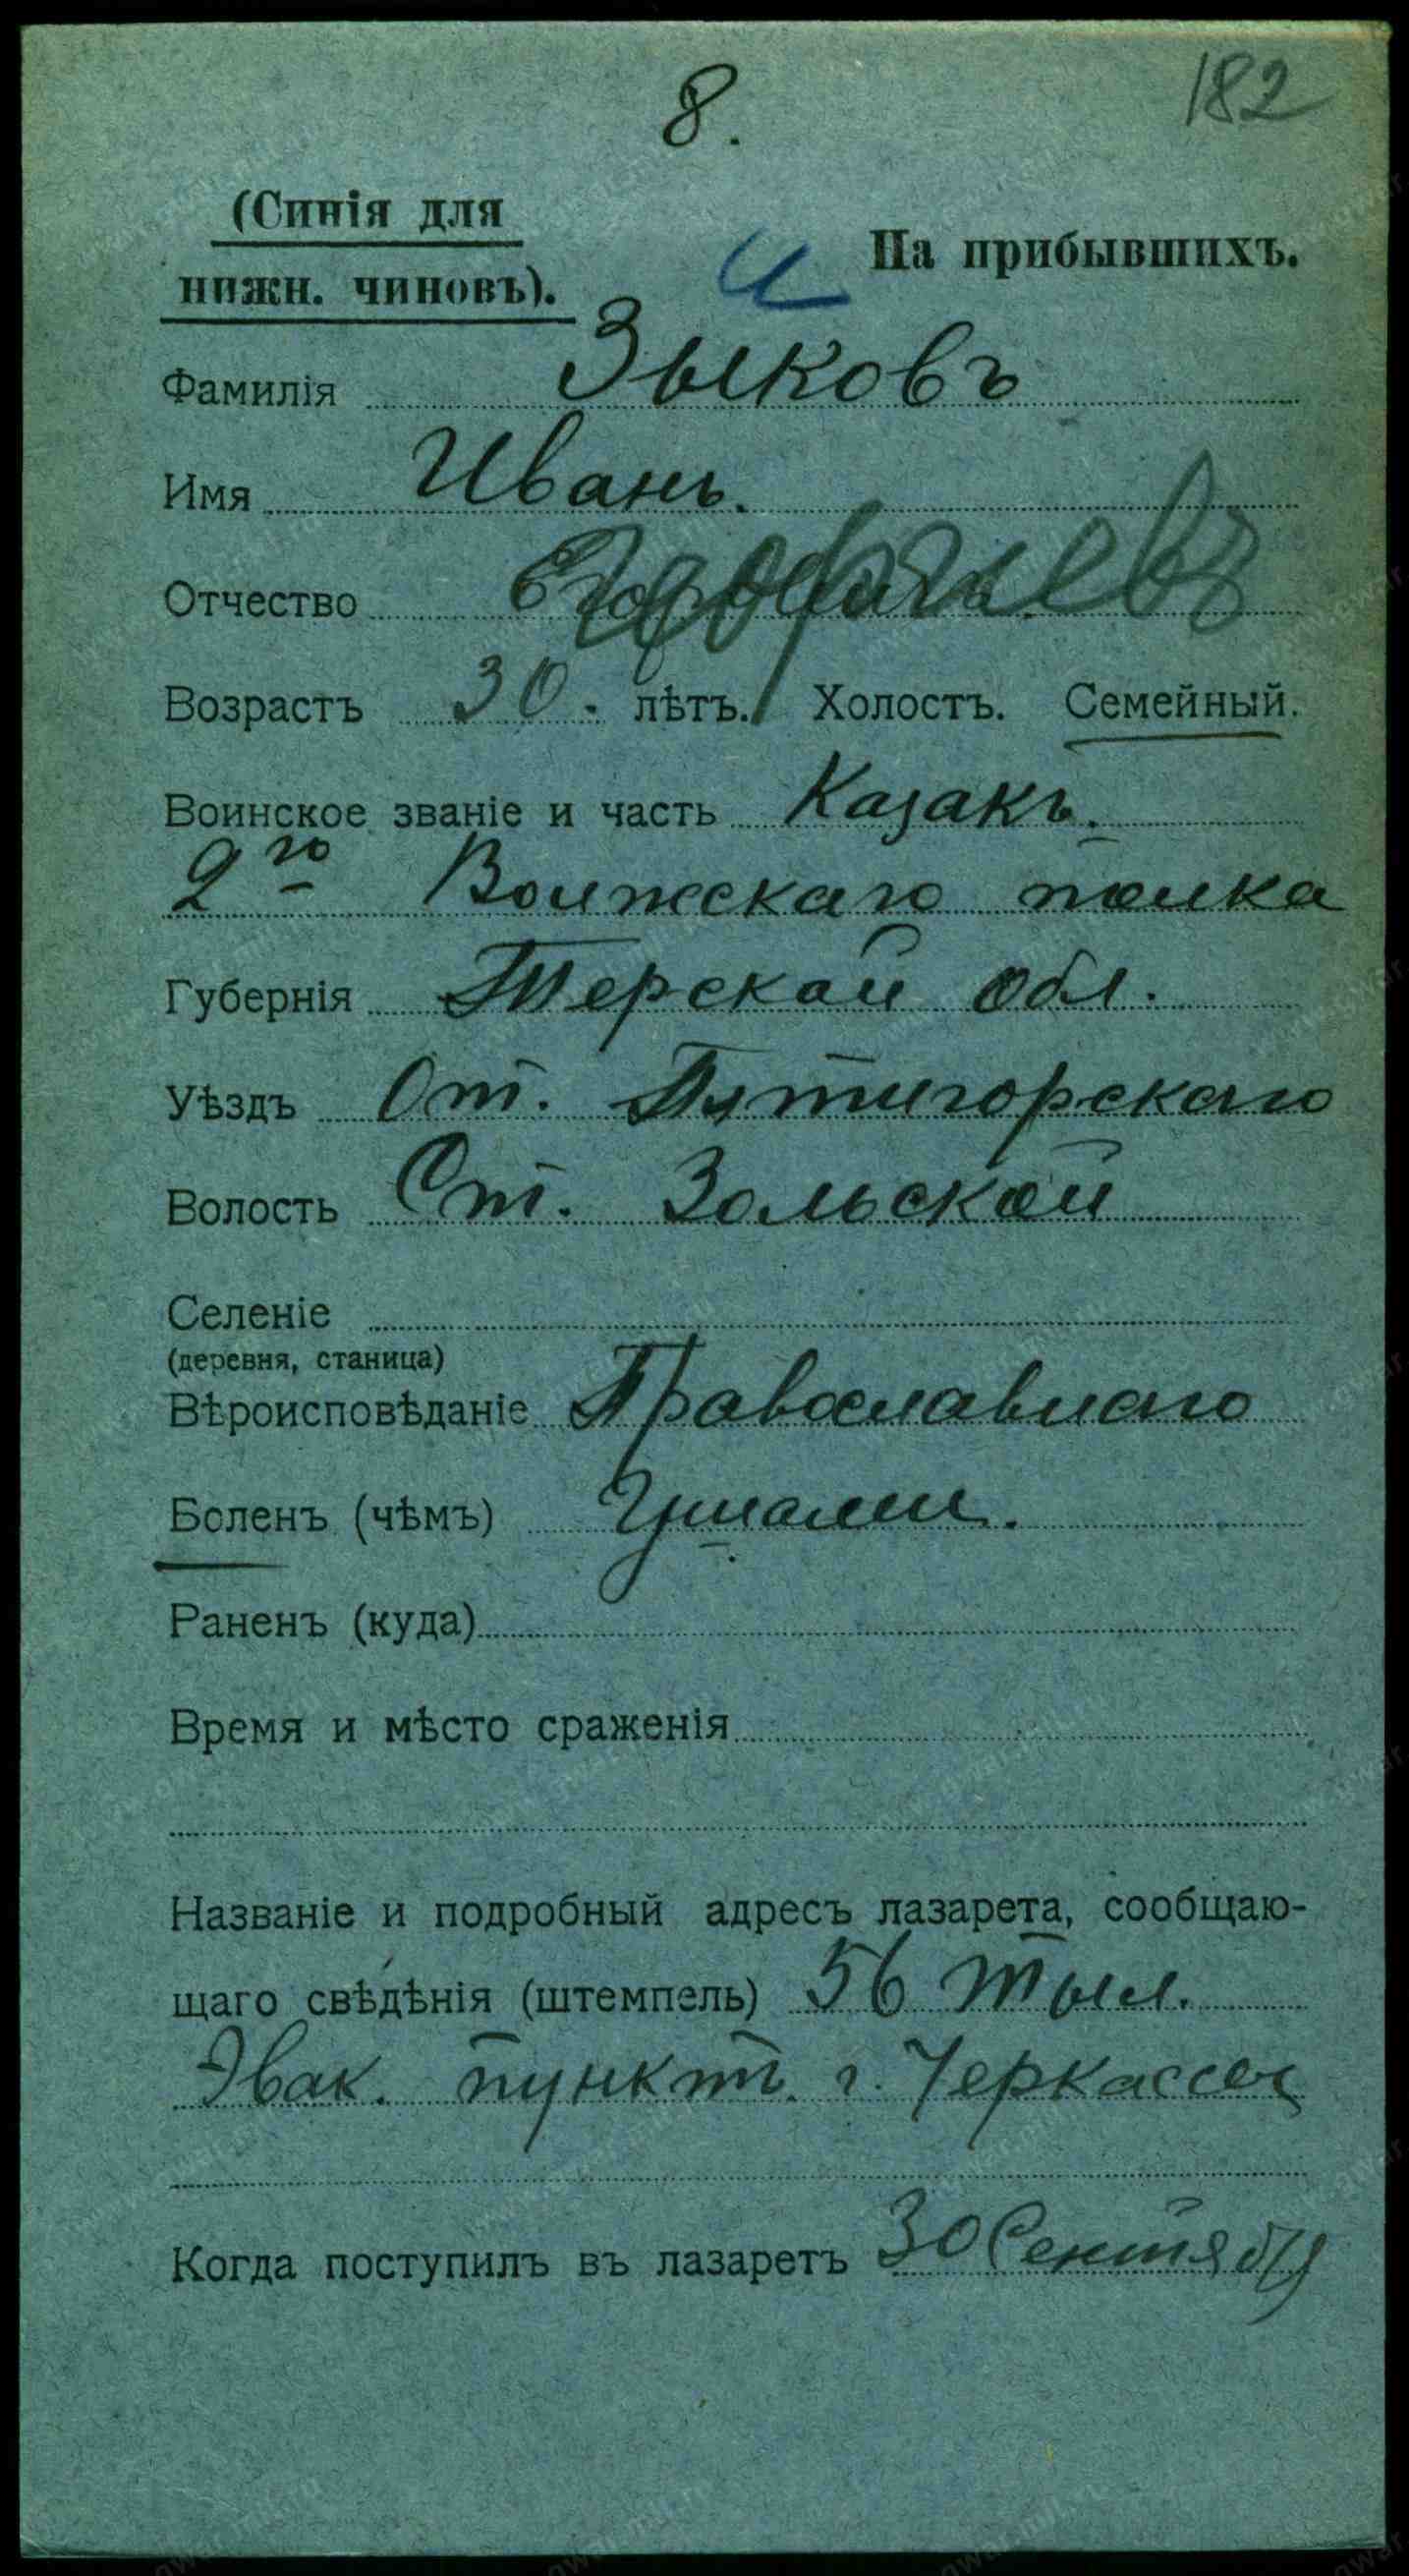 8.
182
(Синія для
нижн. чиновъ).
На прибывшихъ.
Фамилія Зыковъ
Имя Иванъ.
Отчество
Возрастъ 30. лѣтъ. Холостъ. Семейный.
Воинское званіе и часть Казакъ.
2го Волжскаго полка
Губернія Терской обл.
Уѣздъ От. Пятигорскаго
Волость Ст. Зольской
Селеніе
(деревня, станица)
Вѣроисповѣданіе Православнаго
Боленъ (чѣмъ)
Раненъ (куда)
Время и мѣсто сраженія
Названіе и подробный адресъ лазарета, сообщаю-
щаго свѣдѣнія (штемпель) 56 тыл.
Эвак. пунктъ. г. Черкассы
Когда поступилъ въ лазаретъ 30 Сентября